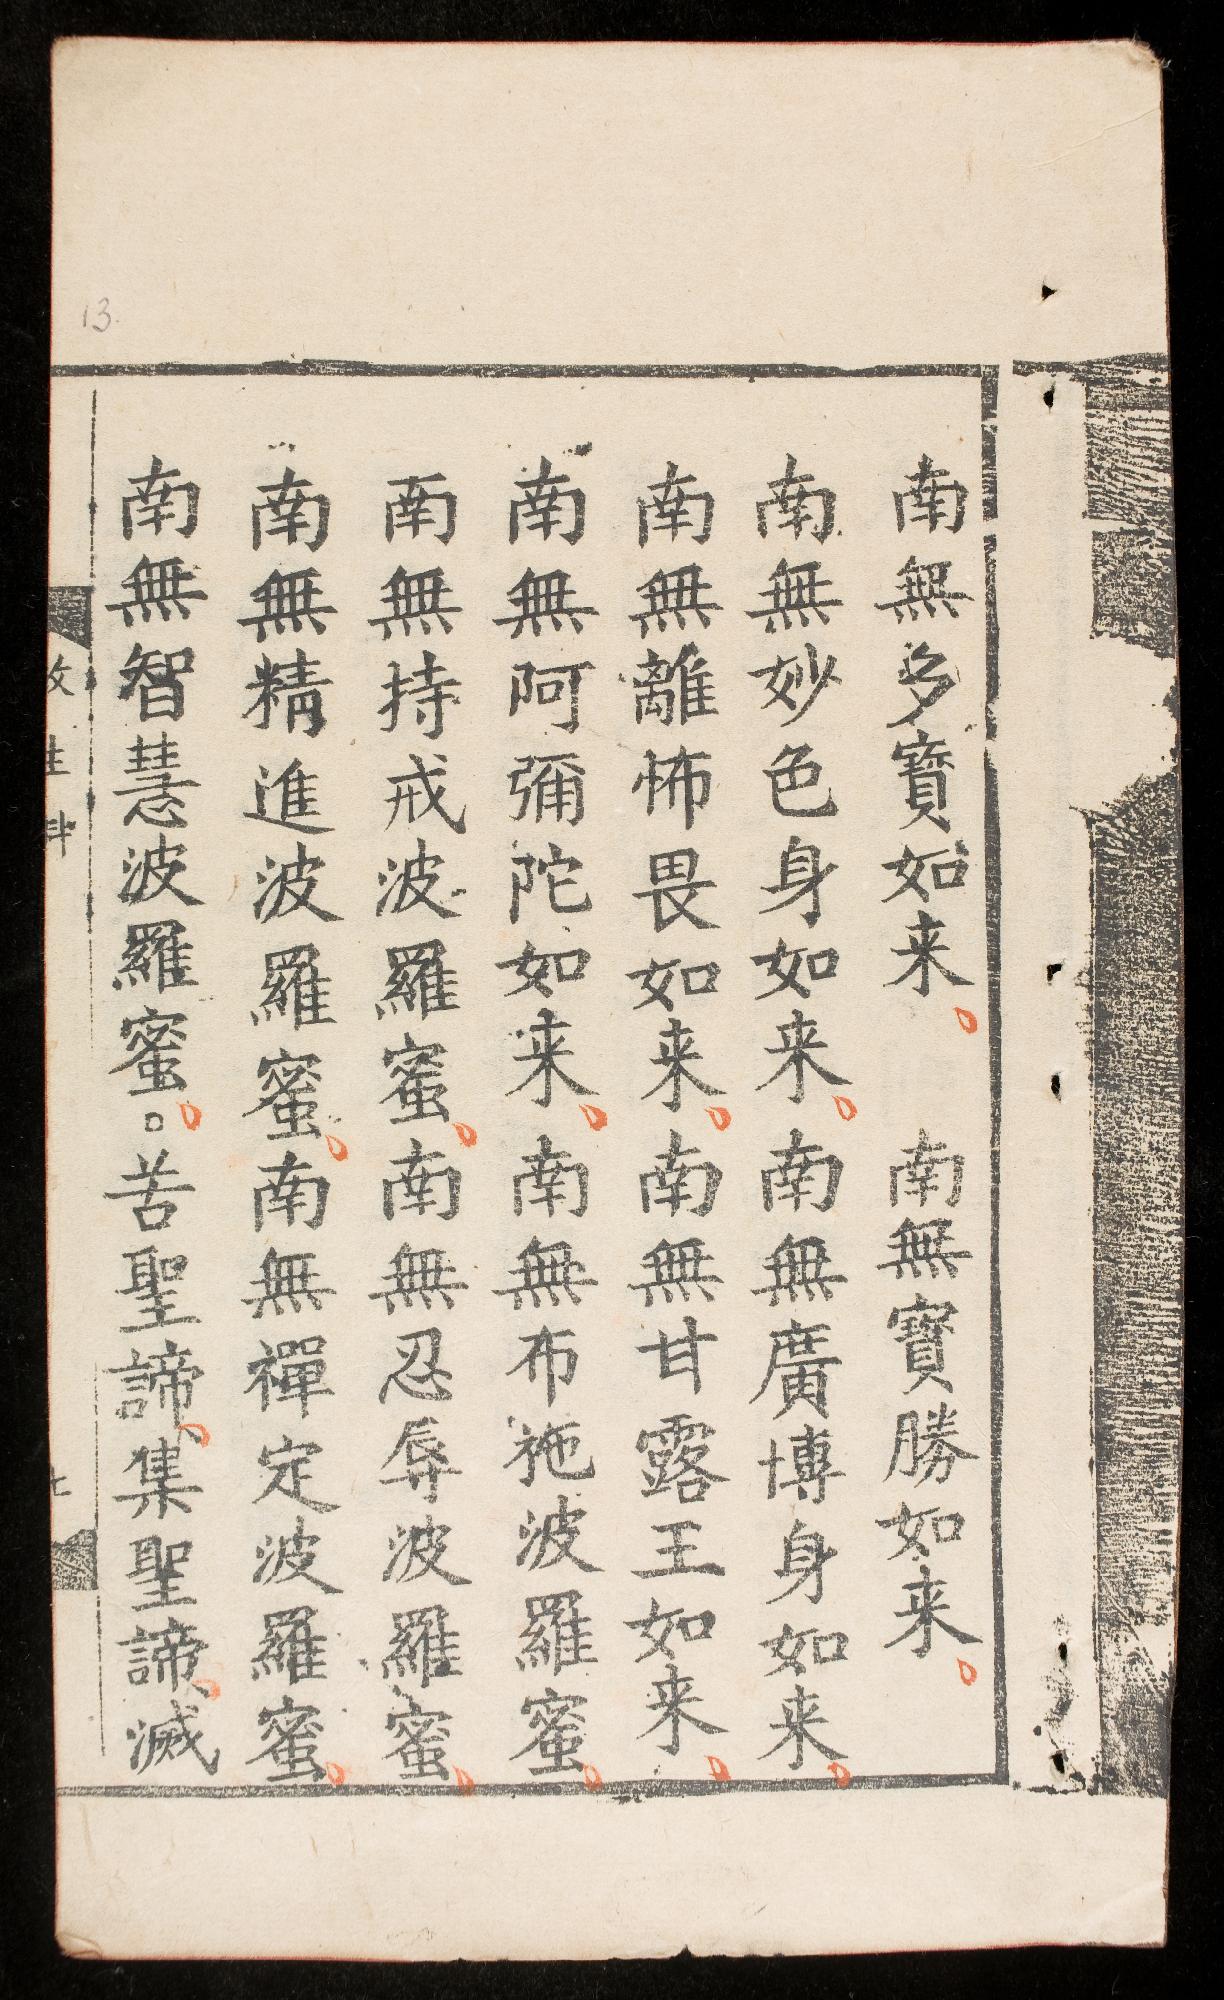 南無多寶如来 南無寶勝如来
南無妙色身如来南無廣博身如来
南無離怖畏如来南無甘露王如来
南無阿彌陀如来南無布袘波羅蜜
南無持戒波羅蜜南無忍辱波羅蜜
南無精進波羅蜜南無禪定波羅蜜
南無智慧波羅蜜。苦聖諦、集聖諦、滅
13.